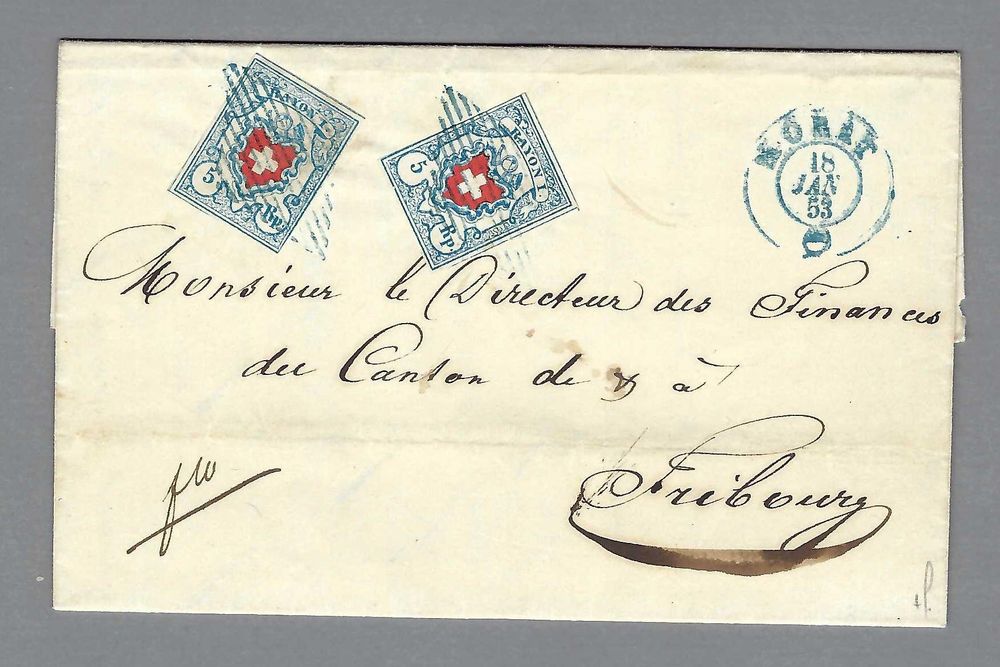 RAYON I.
5 Rp.
RAYON I.
5 Rp.
MORAT
18
JAN
53
Monsieur le Directeur des Finances
du Canton de & à
Fribourg
fco